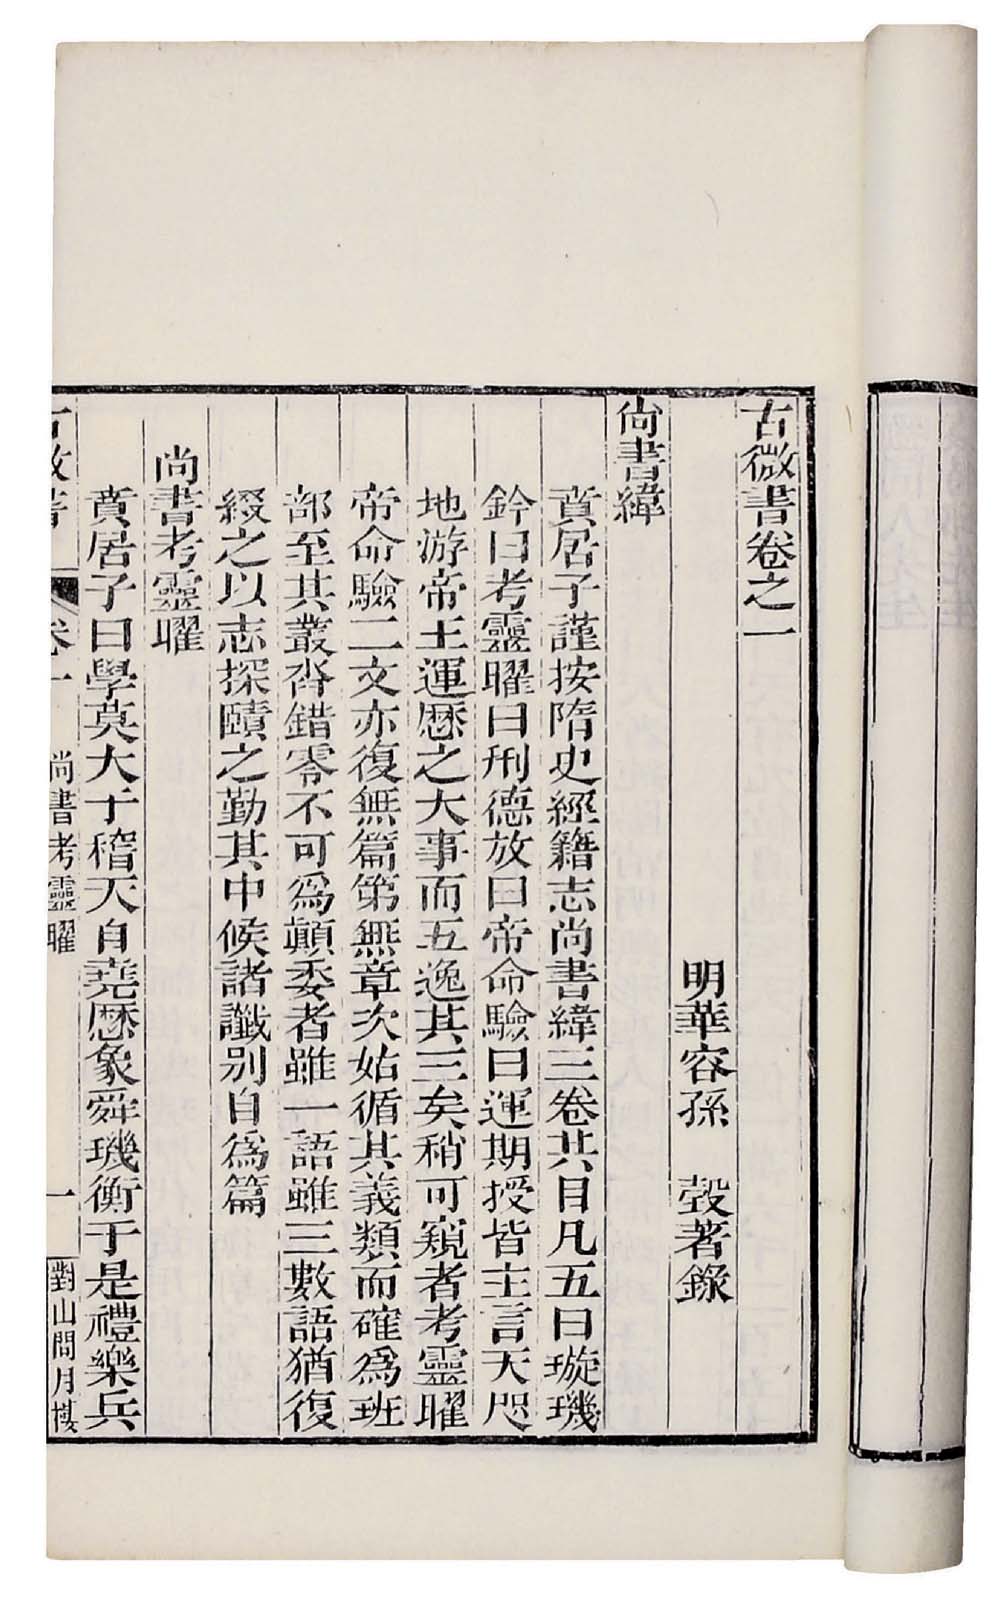 古微書卷之一
明華容孫　瑴著錄
尚書緯
賁居子謹按隋史經籍志尚書緯三卷其目凡五曰璇璣
鈐曰考靈曜曰刑德放曰帝命驗曰運期授皆主言天咫
地游帝王運歷之大事而五逸其三矣稍可窺者考靈曜
帝命驗二文亦復無篇第無章次姑循其義類而確為班
部至其叢脊錯零不可為顛委者雖一語雖三數語猶復
綴之以志探賾之勤其中候諸讖別自為篇
尚書考靈曜
賁居子曰學莫大于稽天自堯歷象舜璣衡于是禮樂兵
古微書
卷一
尚書考靈曜
一
對山問月樓